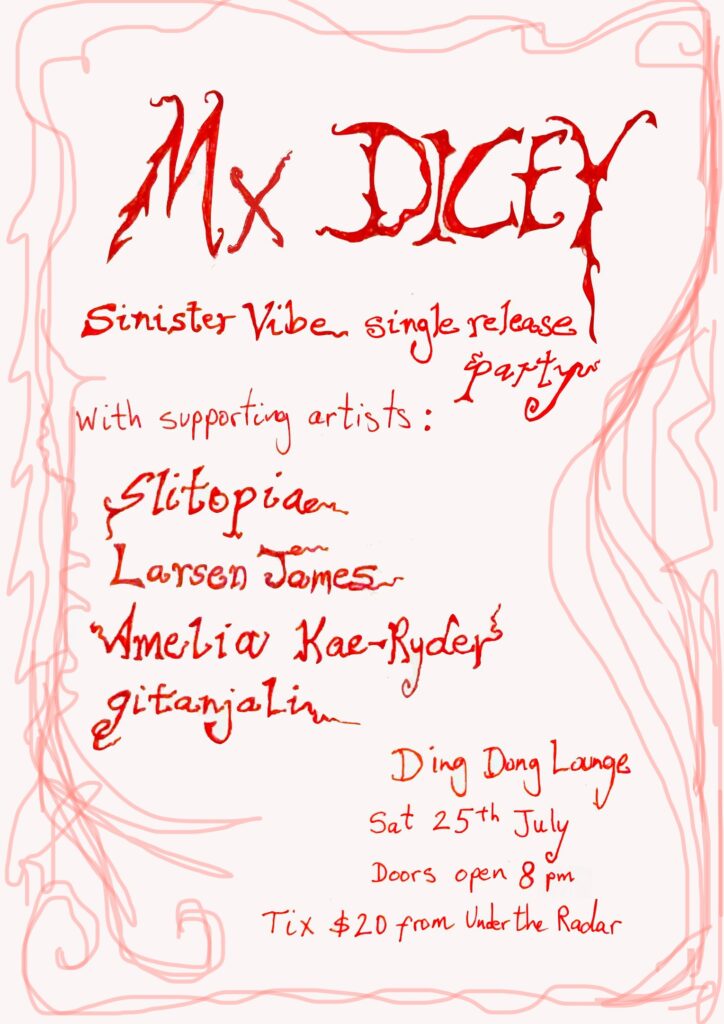 Mx DICEY
Sinister Vibe single release
party
with supporting artists:
Slitopia
Larsen James
Amelia Kae-Ryder
gitanjali
Ding Dong Lounge
Sat 25th July
Doors open 8 pm
Tix $20 from Under the Radar